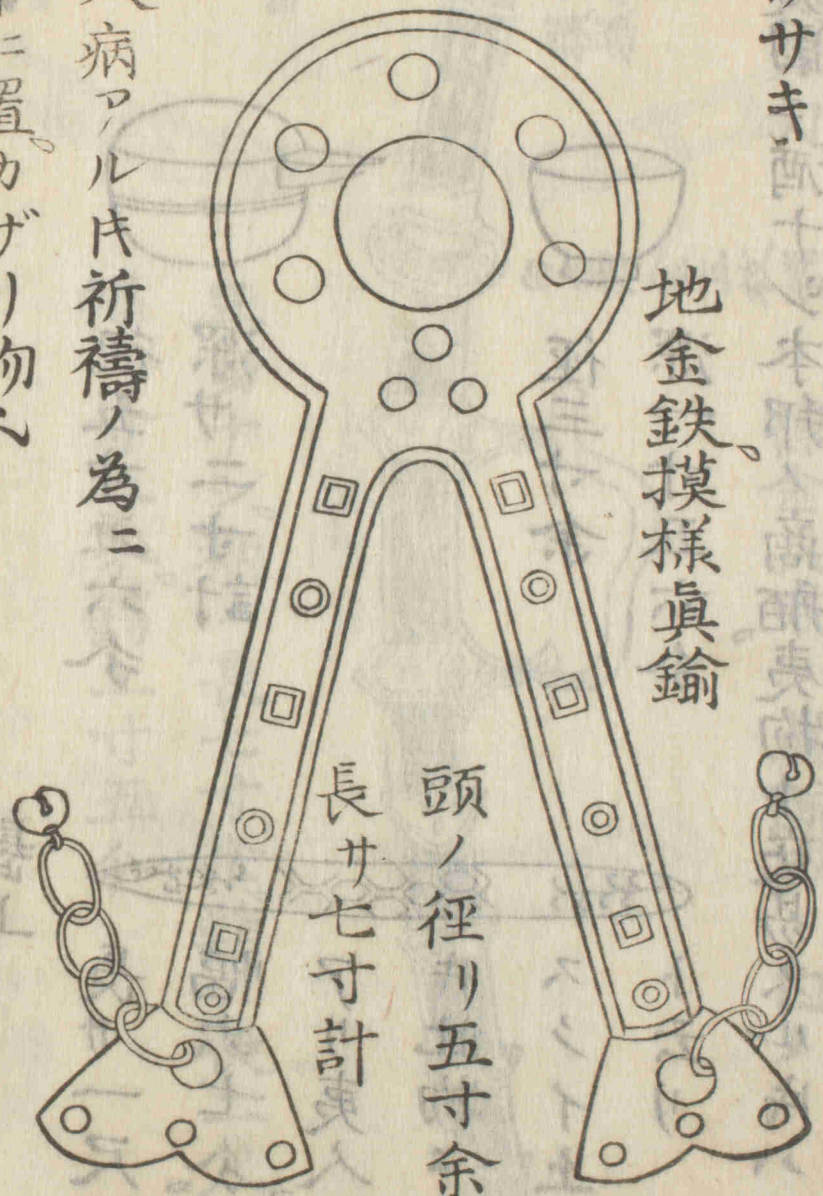 サキ
地金鉄、摸様真鍮
頭ノ徑リ五寸余
長サ七寸計
病アル片祈禱ノ為ニ
ニ置。カザリ物